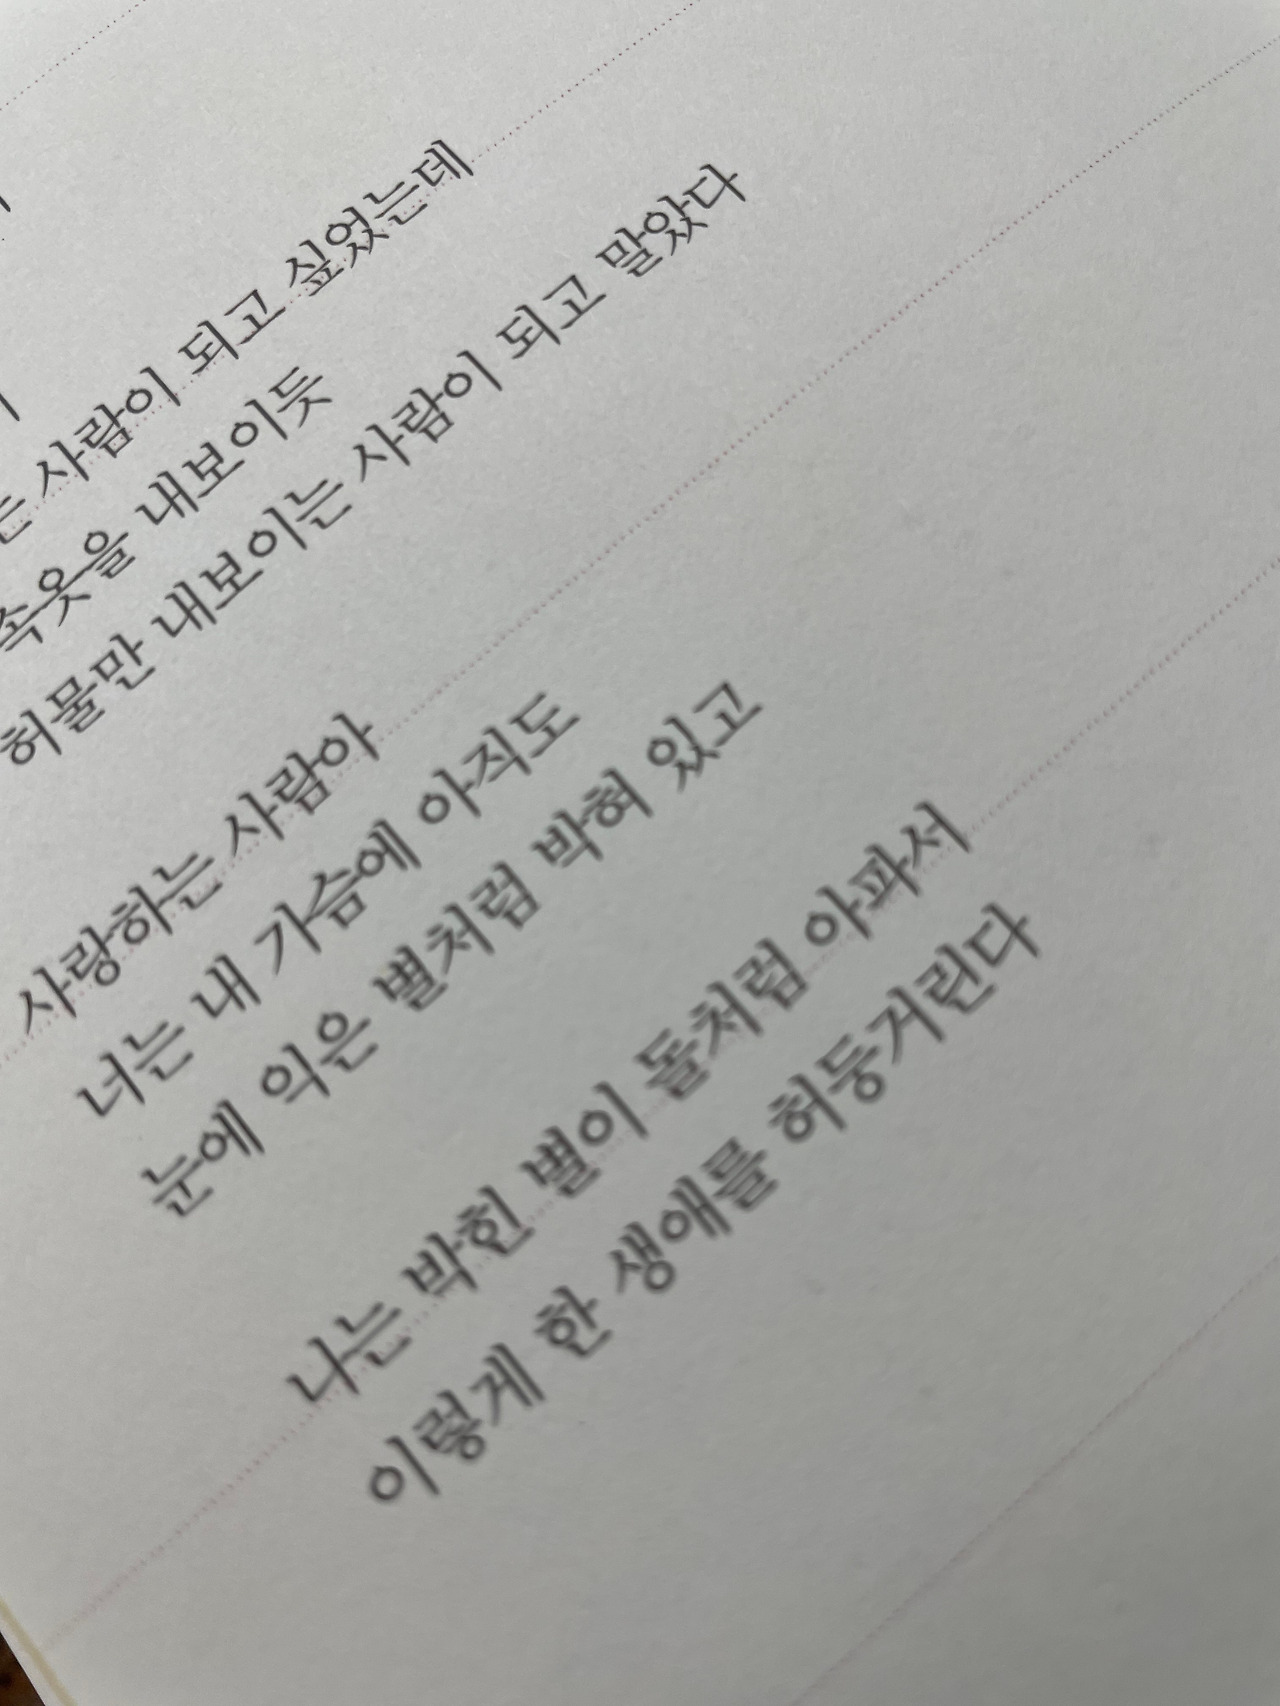 사람이 되고 싶었는데
속옷을 내보이듯
허물만 내보이는 사람이 되고 말았다
사랑하는 사람아
너는 내 가슴에 아직도
눈에 익은 별처럼 박혀 있고
나는 박힌 별이 돌처럼 아파서
이렇게 한 생애를 허둥거린다